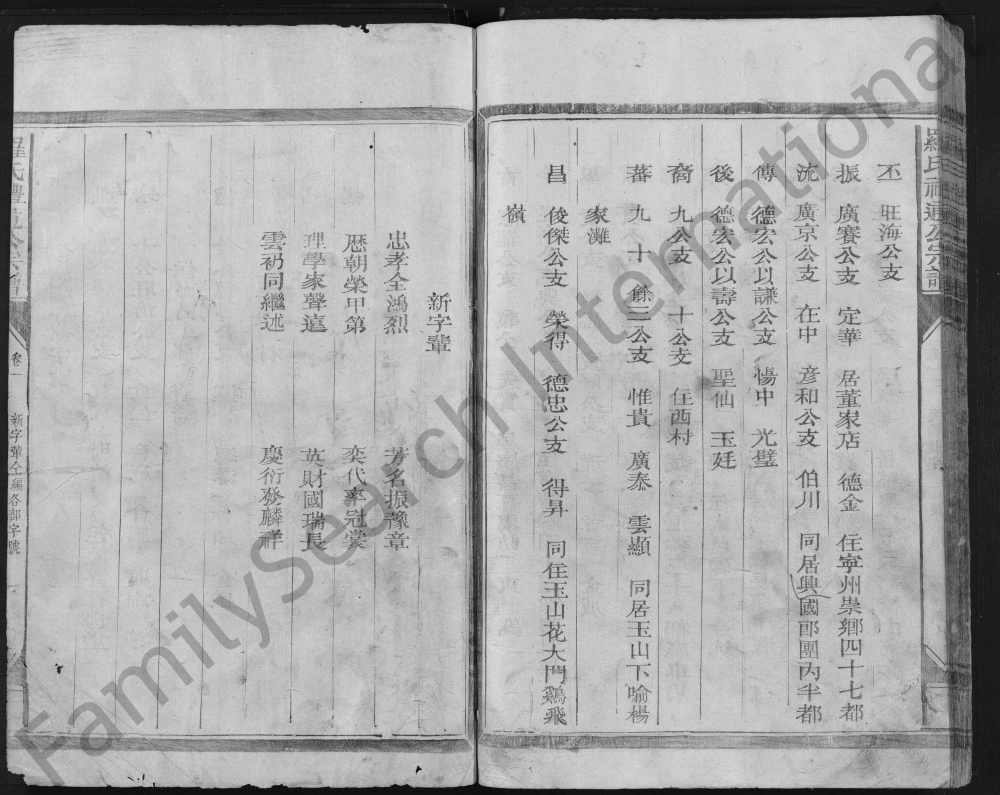 丕　旺海公支
振　廣賽公支　定華　居董家店　德金　住寧州崇鄉四十七都
流　廣京公支　在中　彥和公支　伯川　同居興國郎團內半都
傳　德宏公以謙公支　惕中　光璧
後　德宏公以壽公支　聖仙　玉廷
裔　九公支　十公支　住西村
蕃　九　十　餘三公支　惟貴　廣泰　雲顯　同居玉山下喻楊
家灘
昌　俊傑公支　榮得　德忠公支　得昇　同住玉山花大門鷄飛
嶺
新字輩
忠孝全鴻烈　芳名振豫章
歷朝榮甲第　奕代率冠裳
理學家聲遠　英財國瑞長
雲礽同繼述　慶衍發麟祥
卷一　新字輩仝編各部字號
FamilySearch International